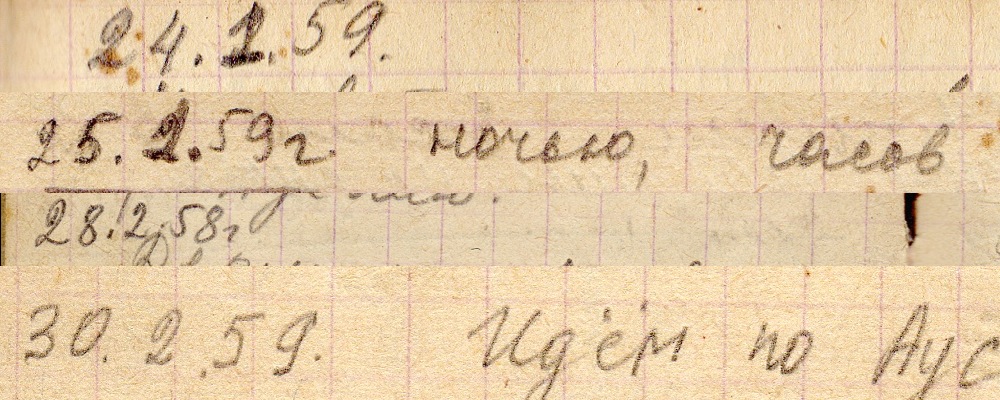 24.2.59.
25.2.59г. ночью, часов
28.2.58г
30.2.59. Идём по Аус